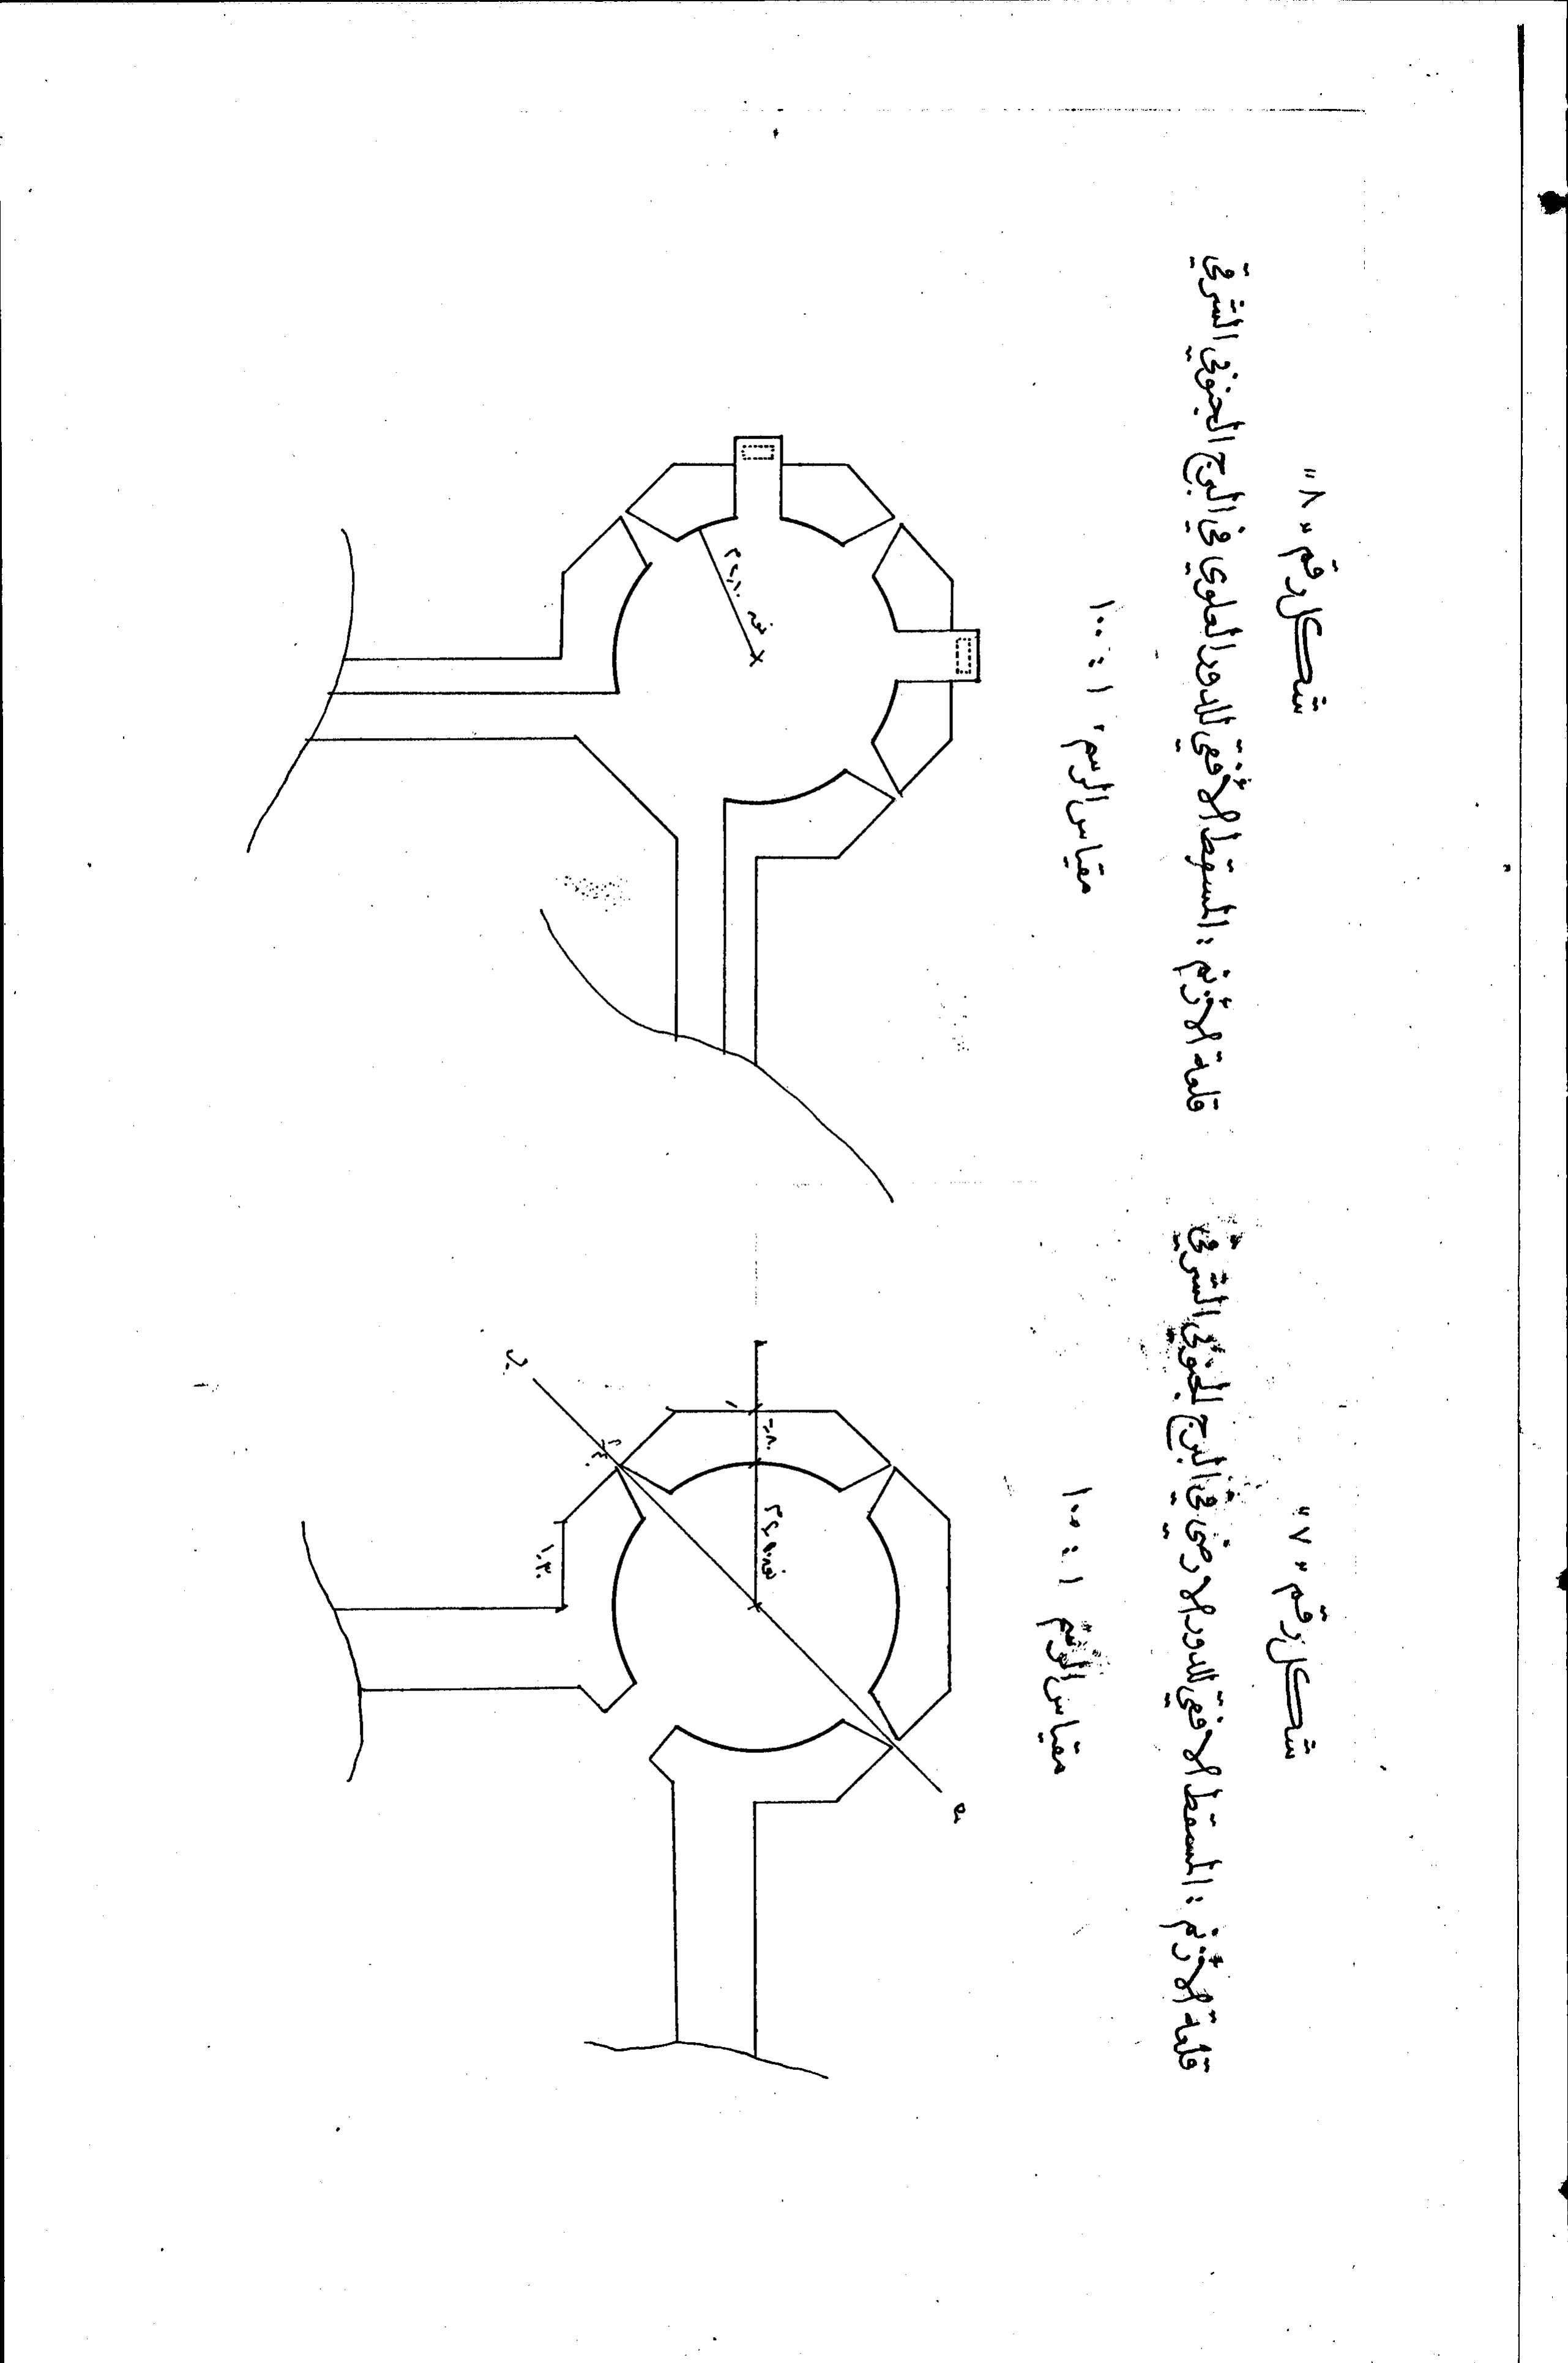 شكل رقم " ٧ "
قلعة الأزنم : المسقط الافقي للدور الارضي في البرج الجنوبي الشرقي
مقياس الرسم ١ : ١٠٠
١.٣٠
شكل رقم " ٨ "
قلعة الأزنم : المسقط الأفقي للدور العلوي في البرج الجنوبي الشرقي
مقياس الرسم ١ : ١٠٠